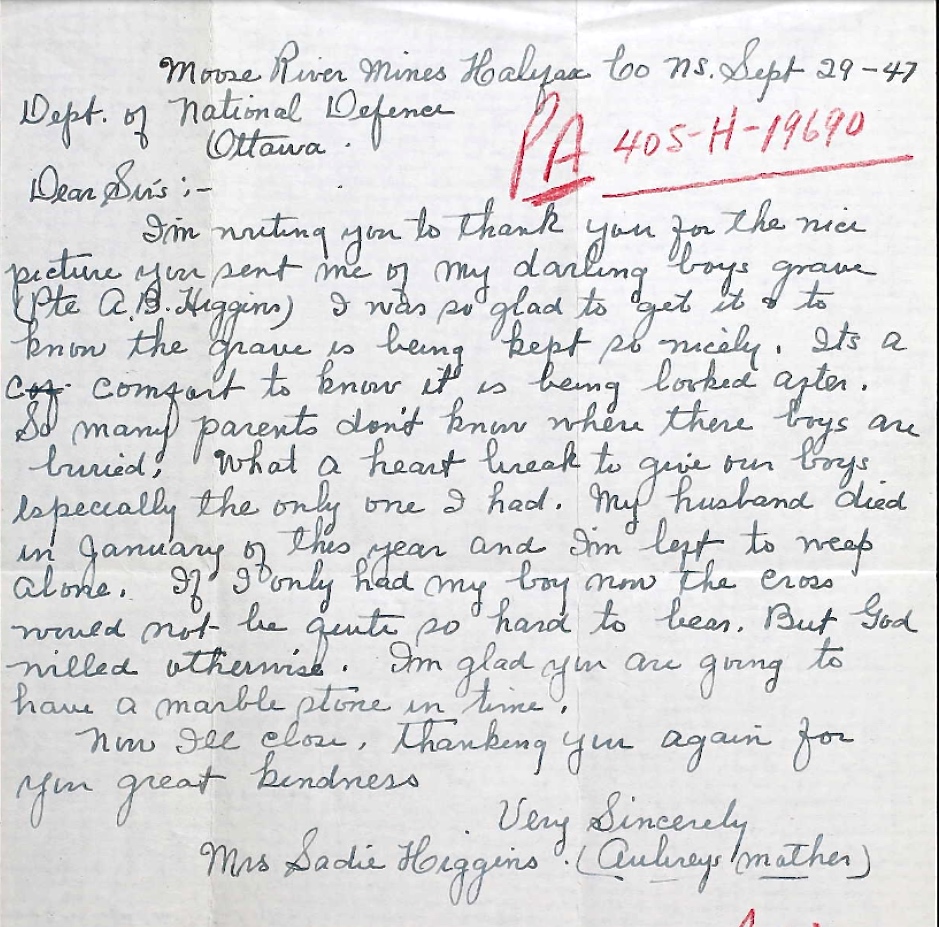 Moose River Mines Halifax Co NS. Sept 29-47
Dept. of National Defence
Ottawa.
PA 405-H-19690
Dear Sirs :-
I'm writing you to thank you for the nice
picture you sent me of my darling boys grave
(Pte A.B. Higgins) I was so glad to get it & to
know the grave is being kept so nicely. Its a
comfort to know it is being looked after.
So many parents don't know where there boys are
buried. What a heart break to give our boys
especially the only one I had. My husband died
in January of this year and I'm left to weep
alone. If I only had my boy now the cross
would not be quite so hard to bear. But God
willed otherwise. I'm glad you are going to
have a marble stone in time.
Now I'll close, thanking you again for
you great kindness
Very Sincerely
Mrs Sadie Higgins. (Aubreys mother)